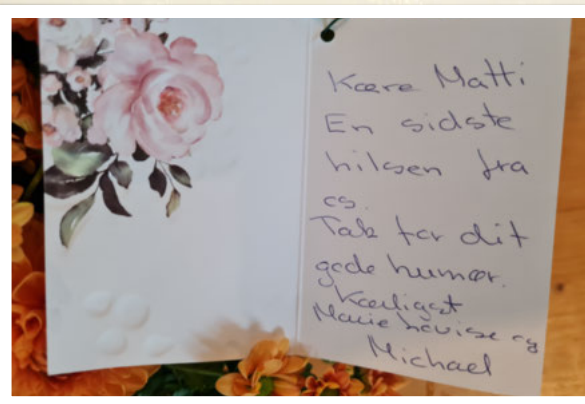 Kære Matti
En sidste
hilsen fra
os.
Tak for dit
gode humør.
Kærligst
Marie Louise og
Michael